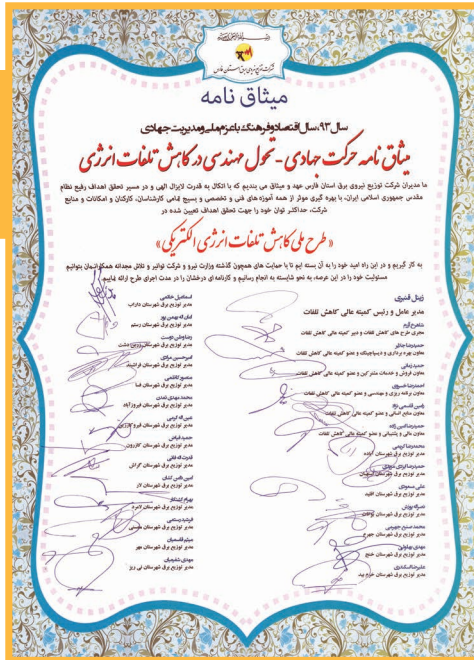 شرکت توزیع نیروی برق استان فارس
میثاق نامه
سال ۹۳، سال اقتصاد و فرهنگ با عزم ملی و مدیریت جهادی
میثاق نامه حرکت جهادی - تحول مهندسی در کاهش تلفات انرژی
ما مدیران شرکت توزیع نیروی برق استان فارس عهد و میثاق می بندیم که با اتکال به قدرت لایزال الهی و در مسیر تحقق اهداف رفیع نظام
مقدس جمهوری اسلامی ایران، با بهره گیری موثر از همه آموزه های فنی و تخصصی و بسیج تمامی کارشناسان، کارکنان و امکانات و منابع
شرکت، حداکثر توان خود را جهت تحقق اهداف تعیین شده در
« طرح ملی کاهش تلفات انرژی الکتریکی »
به کار گیریم و در این راه امید خود را به آن بسته ایم تا با حمایت های همچون گذشته وزارت نیرو و شرکت توانیر و تلاش مجدانه همکارانمان بتوانیم
مسئولیت خود را در این عرصه، به نحو شایسته به انجام رسانیم و کارنامه ای درخشان را در مدت اجرای طرح ارائه نماییم.
مدیر عامل و رئیس کمیته عالی کاهش تلفات
شاهرخ
مجری طرح های کاهش تلفات و دبیر کمیته عالی کاهش تلفات
حمیدرضا
معاون بهره برداری و دیسپاچینگ و عضو کمیته عالی کاهش تلفات
حمید
معاون فروش و خدمات مشترکین و عضو کمیته عالی کاهش تلفات
احمدرضا خسروی
معاون برنامه ریزی و مهندسی و عضو کمیته عالی کاهش تلفات
رامین قاسمی نژاد
معاون منابع انسانی و عضو کمیته عالی کاهش تلفات
حمیدرضا امین زاده
معاون مالی و پشتیبانی و عضو کمیته عالی کاهش تلفات
محمدرضا کریمی
مدیر توزیع برق شهرستان آباده
حمیدرضا
مدیر توزیع برق شهرستان
علی مسعودی
مدیر توزیع برق شهرستان اقلید
مدیر توزیع برق شهرستان بوانات
محمد سمیع جهرمی
مدیر توزیع برق شهرستان جهرم
مهدی
مدیر توزیع برق شهرستان خنج
علیرضا اسکندری
مدیر توزیع برق شهرستان خرم بید
اسماعیل خاتمی
مدیر توزیع برق شهرستان داراب
امان اله بهمن پور
مدیر توزیع برق شهرستان رستم
رضا وطن دوست
مدیر توزیع برق شهرستان زرین دشت
امیرحسین مرادی
مدیر توزیع برق شهرستان فراشبند
منصور کاظمی
مدیر توزیع برق شهرستان فسا
محمد مهدی تمدن
مدیر توزیع برق شهرستان فیروزآباد
عین اله کرمی
مدیر توزیع برق شهرستان قیروکارزین
حمید فیاض
مدیر توزیع برق شهرستان کازرون
قدرت اله
مدیر توزیع برق شهرستان گراش
مدیر توزیع برق شهرستان لار
بهرام
مدیر توزیع برق شهرستان لامرد
فرشید رستمی
مدیر توزیع برق شهرستان ممسنی
میثم قاسمیان
مدیر توزیع برق شهرستان مهر
مهدی شفیعیان
مدیر توزیع برق شهرستان نی ریز